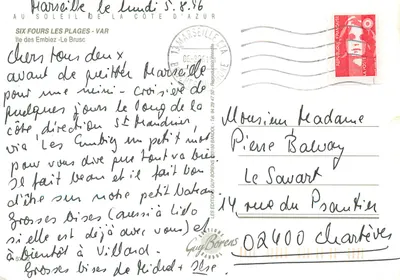 Marseille le lundi 5.8.96
AU SOLEIL DE LA COTE D'AZUR
SIX FOURS LES PLAGES - VAR
Ile des Embiez - Le Brusc
Chers tous deux
avant de quitter Marseille
pour une mini-croisière de
quelques jours le long de la
côte, direction St Mandrier,
via Les Embiez un petit mot
pour vous dire que tout va bien.
Il fait beau et il fait bon
d'être sur notre petit bateau
Grosses bises (aussi à Lido
si elle est déjà avec vous) et
à bientôt à Villard.
Grosses bises de Michel + Ilse.
Monsieur Madame
Pierre Balvay
Le Savart
14 rue du Psautier
02400 Chartèves